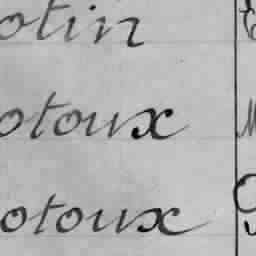 otin
otoux
otoux